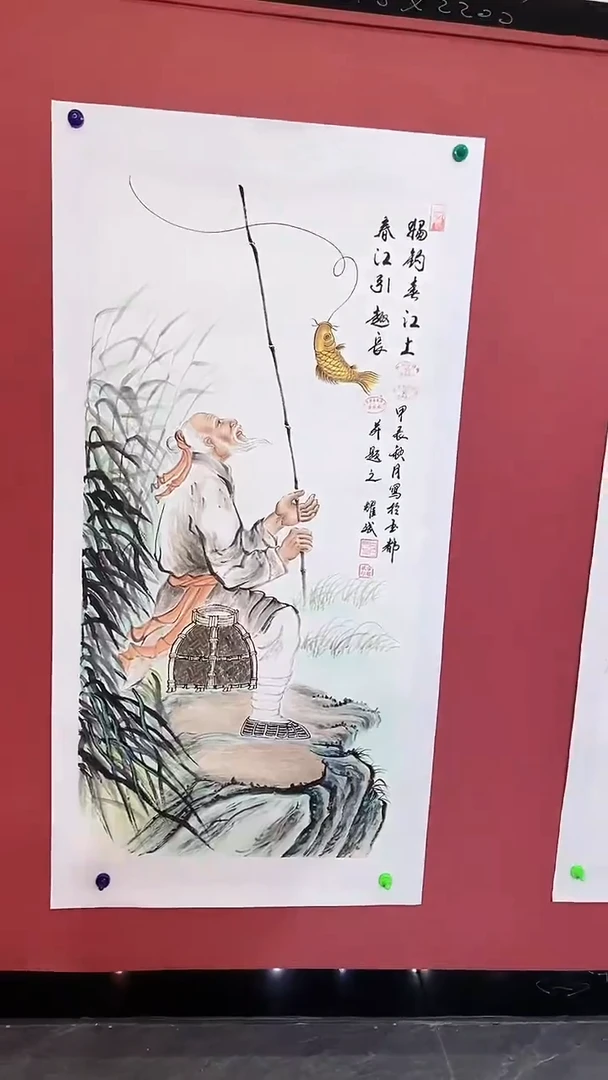 独钓春江上
春江引趣长
甲辰秋月写於京都
并题之 耀斌
2200